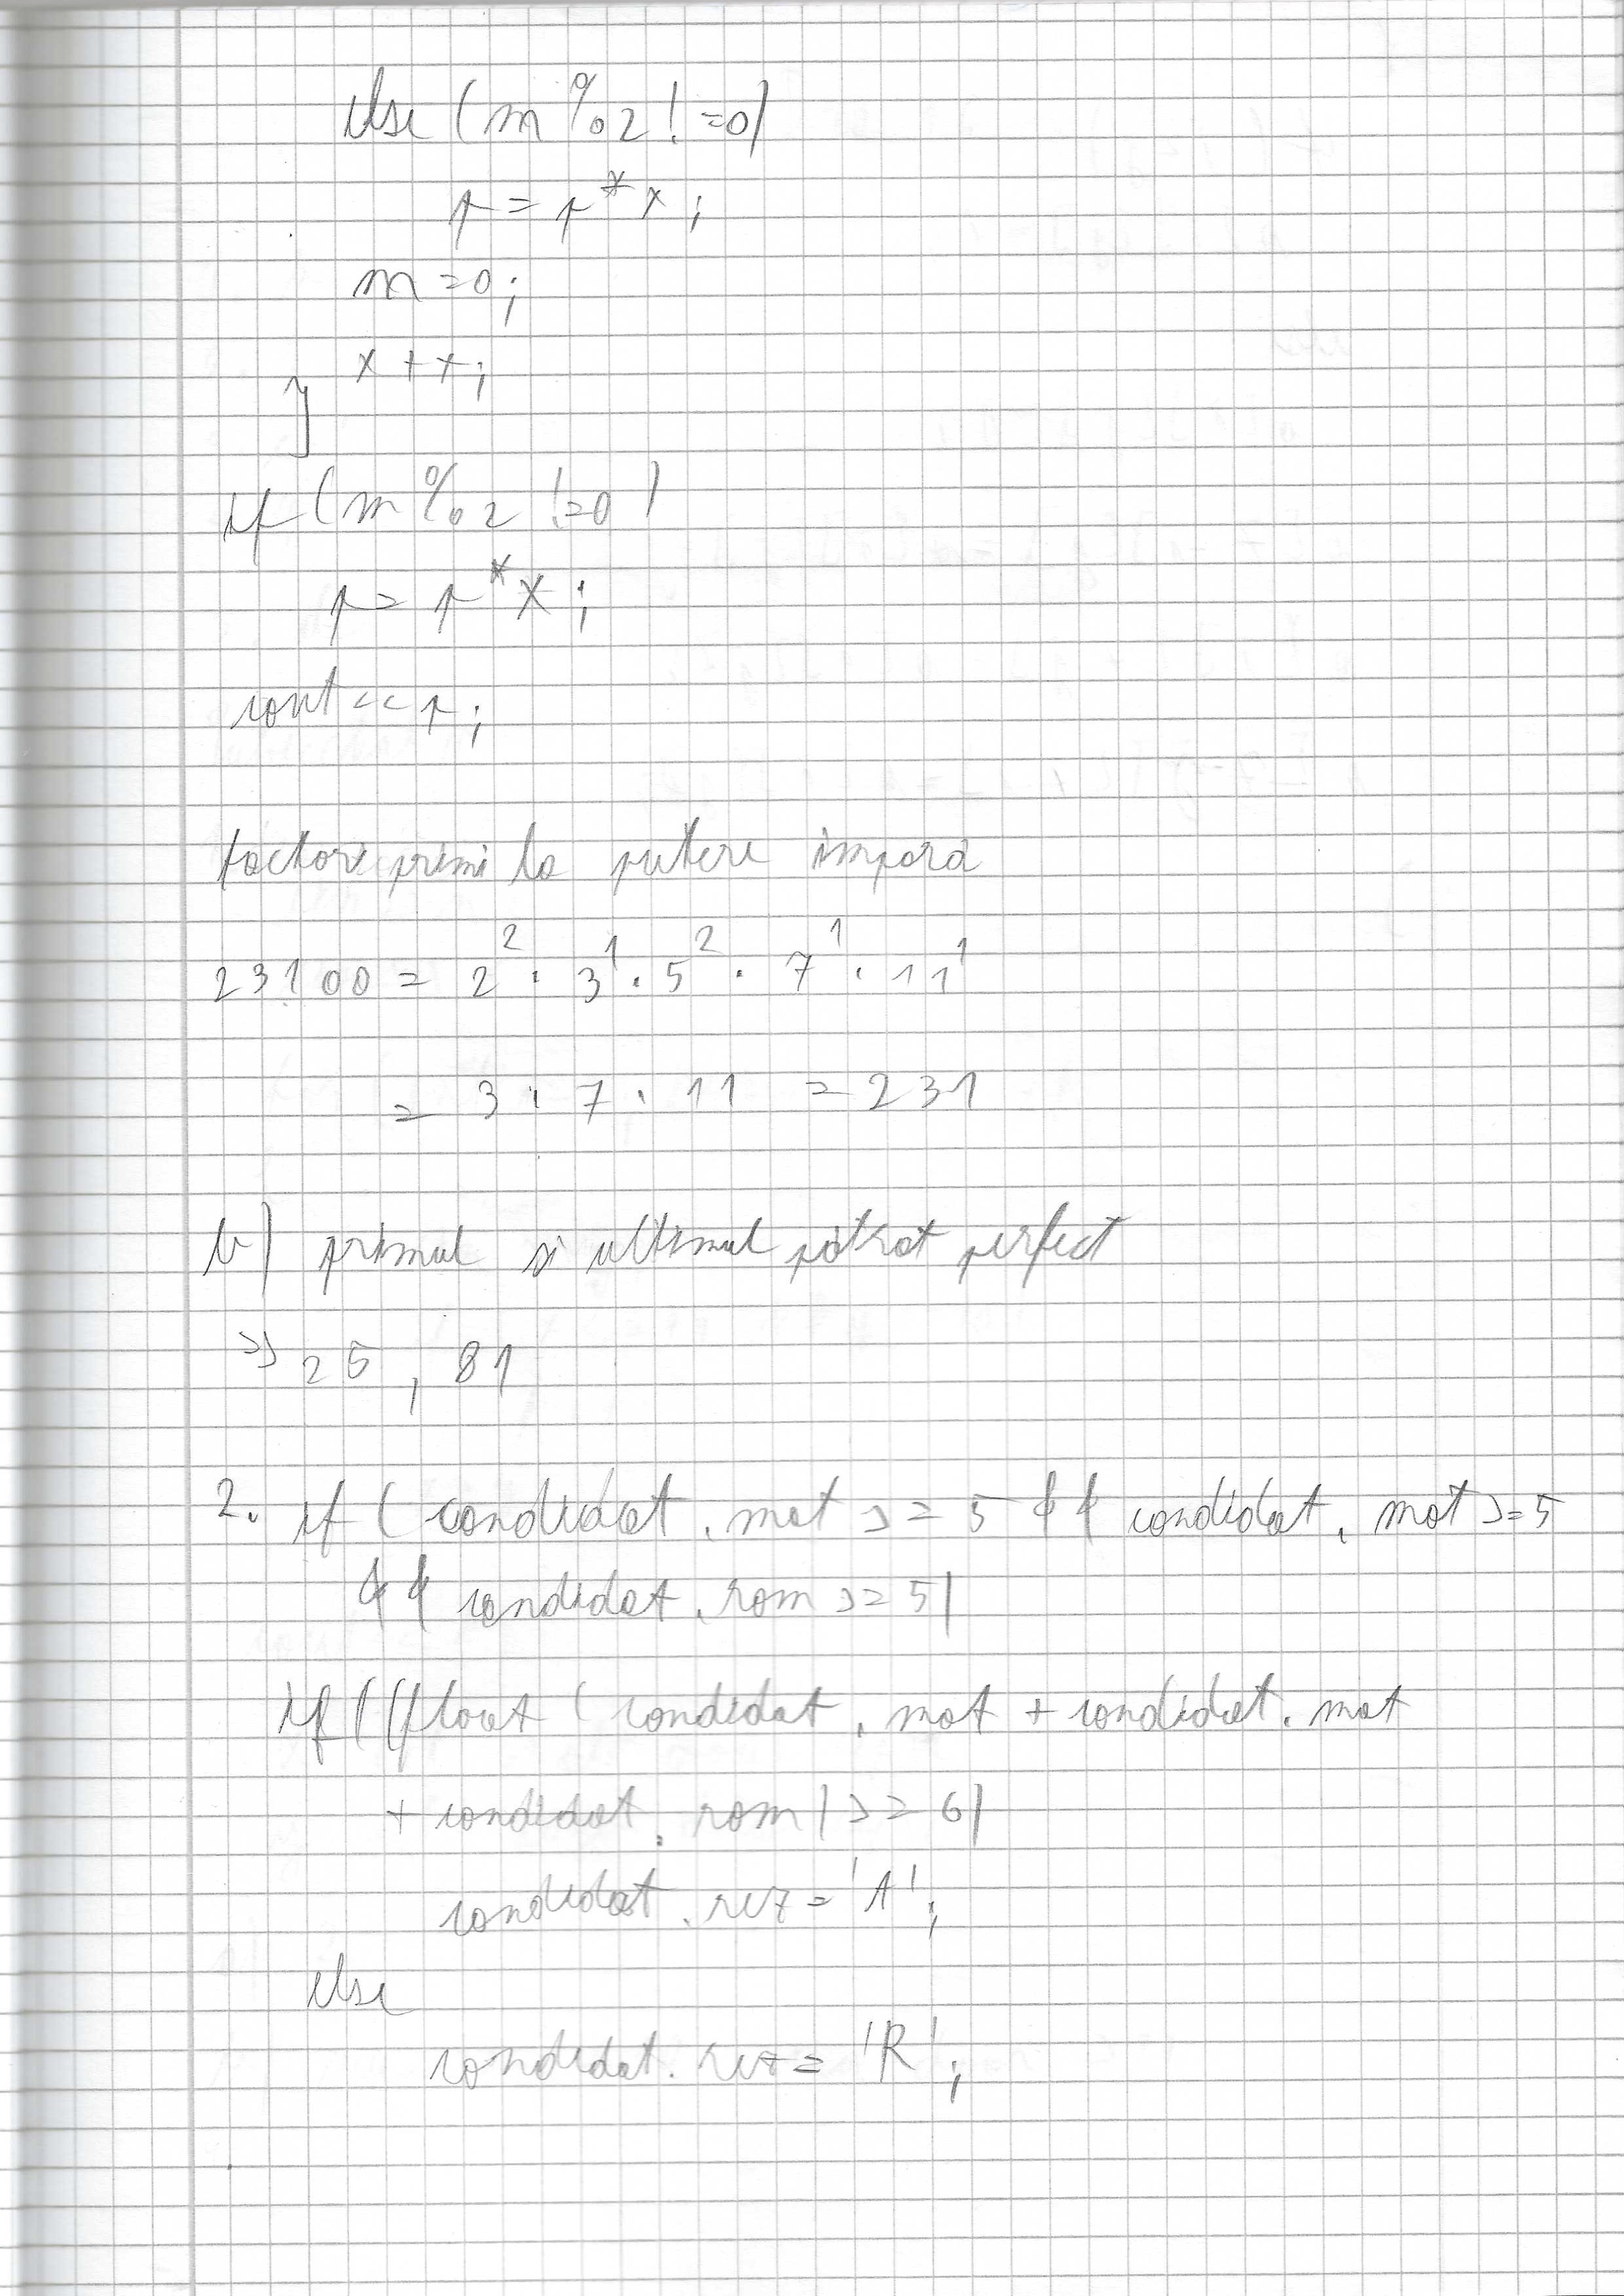 else (m%2!=0)
p=p*x;
m=0;
x++;
}
if (m%2!=0)
p=p*x;
cout<<p;
factori primi la putere impară
23100 = 2^2 · 3^1 · 5^2 · 7^1 · 11^1
= 3 · 7 · 11 = 231
b) primul si ultimul pătrat perfect
=> 25, 81
2. if (candidat.mat >= 5 && candidat.mat >= 5
&& candidat.rom >= 5)
if ((float (candidat.mat + candidat.mat
+ candidat.rom) >= 6)
candidat.rez = 'A';
else
candidat.rez = 'R';